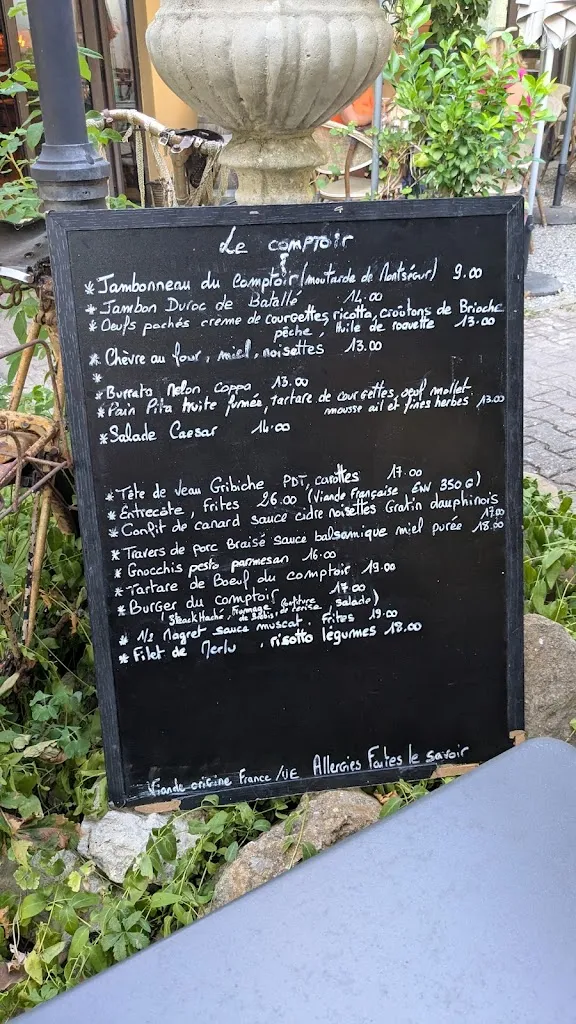 Le comptoir
* Jambonneau du Comptoir (moutarde de Montségur) 9.00
* Jambon Duroc de Batallé 14.00
* Oeufs pochés crème de courgettes, ricotta, croûtons de Brioche
pêche, Huile de roquette 13.00
* Chèvre au four, miel, noisettes 13.00
*
* Burrata Melon Coppa 13.00
* Pain Pita truite fumée, tartare de courgettes, oeuf mollet
mousse ail et fines herbes 13.00
* Salade Caesar 14.00
* Tête de veau Gribiche PDT, carottes 17.00
* Entrecôte, frites 26.00 (Viande Française, ENV 350 G)
* Confit de canard sauce cidre noisettes Gratin dauphinois
17.00
* Travers de porc Braisé sauce balsamique miel purée 18.00
* Gnocchis pesto parmesan 16.00
* Tartare de Boeuf du comptoir 19.00
* Burger du comptoir 17.00
(Steack Haché, Fromage de Brebis, confiture de cerise, salade)
* 1/2 Magret sauce muscat, Frites 19.00
* Filet de Merlu, risotto légumes 18.00
Viande origine France /UE Allergies Faites le savoir